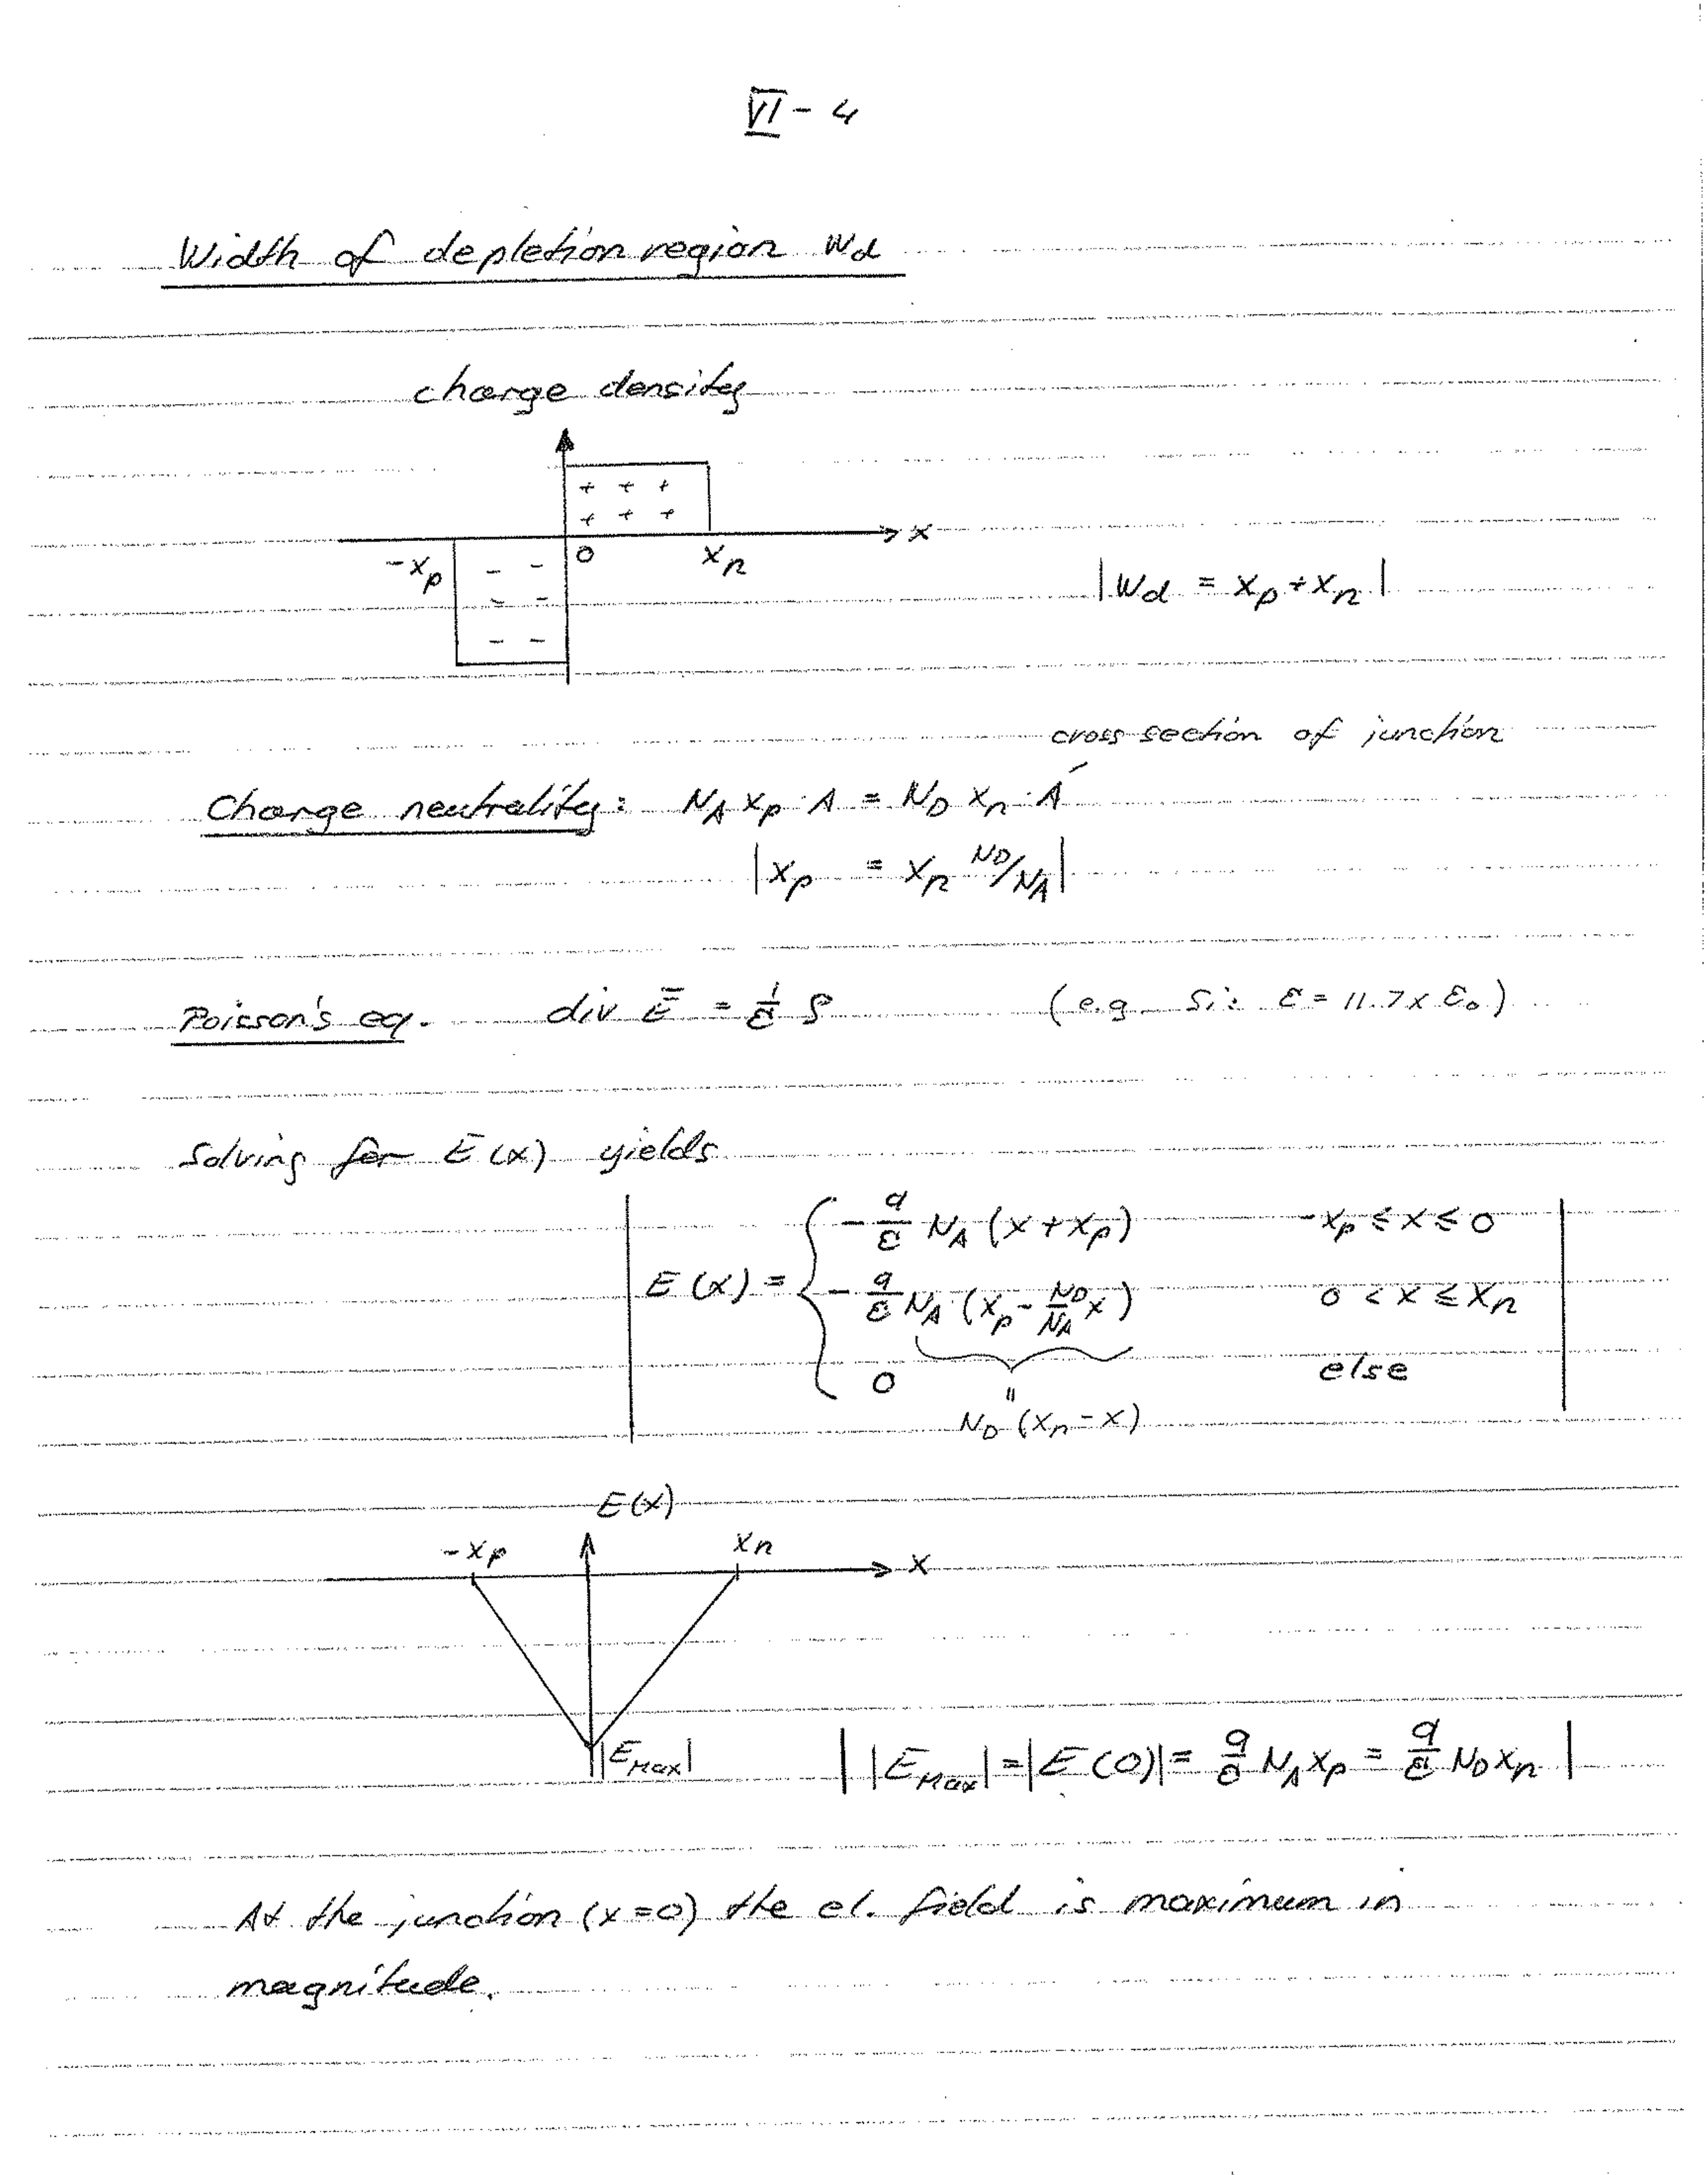 VI - 4
Width of depletion region Wd
charge density
+ + +
+ + +
x
-xp
0
xn
- -
- -
- -
| Wd = xp + xn |
cross section of junction
Charge neutrality: NA xp · A = ND xn · A
| xp = xn ND/NA |
Poisson's eq. div Ē = 1/ε ρ (e.g. Si: ε = 11.7 x ε0)
Solving for E(x) yields
- q/ε NA (x + xp) -xp ≤ x ≤ 0
E(x) = - q/ε NA · (xp - ND/NA x) 0 < x ≤ xn
0 else
"
ND (xn - x)
E(x)
-xp
xn
x
|EMax|
| |EMax| = |E(0)| = q/ε NA xp = q/ε ND xn |
At the junction (x=0) the el. field is maximum in
magnitude.